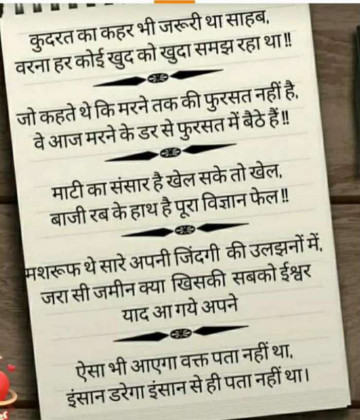 कुदरत का कहर भी जरूरी था साहब,
वरना हर कोई खुद को खुदा समझ रहा था!!
जो कहते थे कि मरने तक की फुरसत नहीं है,
वे आज मरने के डर से फुरसत में बैठे हैं!!
माटी का संसार है खेल सके तो खेल,
बाजी रब के हाथ है पूरा विज्ञान फेल!!
मशरूफ थे सारे अपनी जिंदगी की उलझनों में,
जरा सी जमीन क्या खिसकी सबको ईश्वर
याद आ गये अपने
ऐसा भी आएगा वक्त पता नहीं था,
इंसान डरेगा इंसान से ही पता नहीं था।